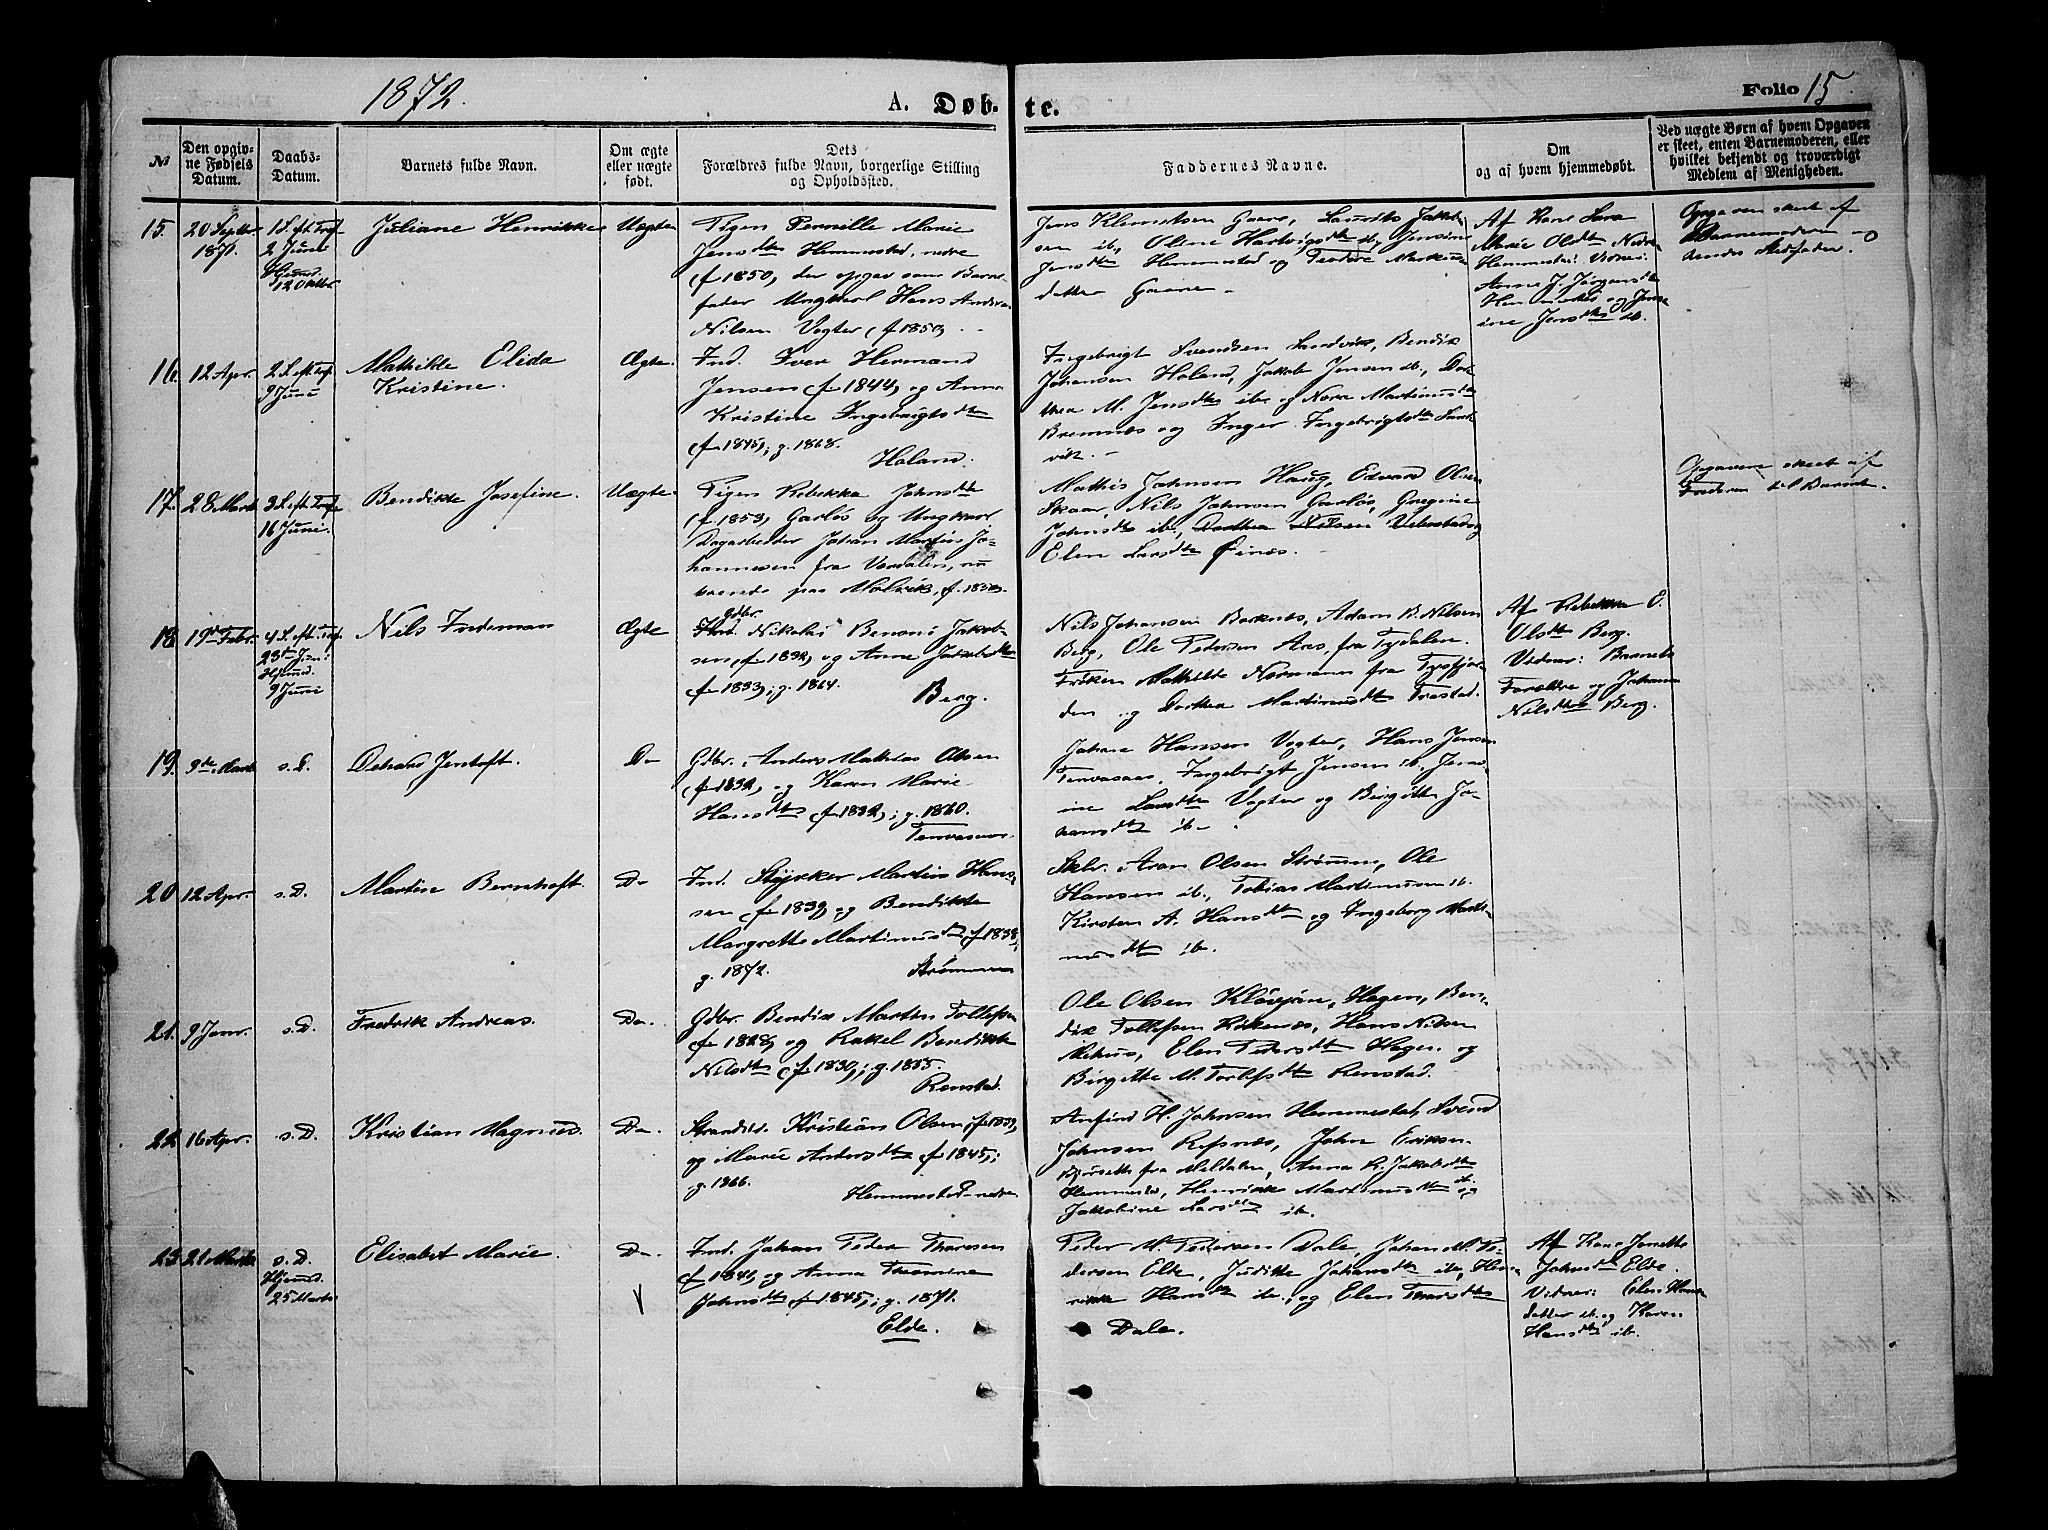 1872.
A. Døb- te.
Folio 15.
№
Den opgiv-
ne Fødsels
Datum.
Daabs-
Datum.
Barnets fulde Navn.
Om ægte
eller uægte
født.
Dets
Forældres fulde Navn, borgerlige Stilling
og Opholdssted.
Faddernes Navne.
Om
og af hvem hjemmedøbt.
Ved uægte Børn af hvem Opgaven
er skeet, enten Barnemoderen, eller
hvilket bekjendt og troværdigt
Medlem af Menigheden.
15.
20 Septbr
1871.
1 S. eft. Tref.
2 Juni
Hjemd.
12 Oktbr
Juliane Henrikke
Uægte
Pigen Pernille Marie
Jensdtr Hemmestad, nedre
(f 1850), der opgav som Barne-
fader Ungkarl Hans Andreas
Nilsen Vogter (f 1850).
Jens Klemetsen Gaare, Laurits Jakob-
sen ib., Oline Hartvigsdtr ib., Jensine
Jensdtr Hemmestad og Markus-
datter Gaare.
Af Kone Sara
Marie Olsdtr Nedre
Hemmestad. Vidner:
Anne J. Jørgensdtr
Hemmestad og Jens-
ine Jensdtr ib.
Opgaven skeet af
Barnemoderen og
hendes Stedfader.
16.
12 Apr.
2 S. eft. Tref.
9 Juni
Mathilde Elida
Kristine.
Ægte.
Ind. Iver Hermand
Jensen (f 1844) og Anna
Kristine Ingebrigtsdtr
(f 1845); g. 1868.
Holand.
Ingebrigt Svendsen Sandvik, Bendix
Johansen Holand, Jakob Jensen ib., Dor-
thea M. Jensdtr ib. og Nora Martinusdtr
Bremnes og Inger Ingebrigtsdtr Sand-
vik.
17.
28 Marts
3 S. eft. Tref.
16 Juni.
Bendikte Josefine.
Uægte.
Pigen Rebekka Johnsdtr
(f 1853) Garløs og Ungkarl
Dagarbeider Johan Martin Jo-
hannesen fra Værdalen, nu
værende paa Malvik, f. 1850.
Mathis Johnsen Haug, Edvard Olsen
Skaar, Nils Johnsen Garløs, Gregine
Johnsdtr ib., Dorthea Nilsen
Elen Larsdtr Øinæs.
Opgaven skeet af
Faderen til Barnet.
18
19de Febr.
4 S. eft. Tref.
23de Juni
Hjemd.
9 Juni
Nils Indeman
Ægte
Gdbr.
Nikolai Benoni Jakob-
sen (f 1832) og Anne Jakobsdtr
(f 1833); g. 1864.
Berg.
Nils Johansen Barknes, Adam B. Nilsen
Berg, Ole Pedersen Aas fra Tydalen.
Frøken Mathilde Normann fra Tysfjor-
den og Dorthea Martinusdtr Trastad.
Af Rebekka E.
Olsdtr Berg.
Vidner: Barnets
Forældre og Johanna
Nilsdtr Berg.
19.
9de Marts
s. D.
Jentoft.
Do
Gdbr. Anders Mathias Olsen
(f 1832) og Karen Marie
Hansdtr (f 1832); g. 1860.
Johan Hansen Vogter, Hans Jensen
Ingebrigt Jensen ib., Jens-
ine Larsdtr Vogter og Birgitte Jo-
hansdtr ib.
20
12 Apr.
s. D.
Martin Berntoft.
Do
Ind. Styrker Martin Han-
sen (f 1839) og Bendikte
Margrethe Martinusdtr (f 1838);
g. 1872. Strømmen
Skolr. Aron Olsen Strømmen, Ole
Hansen ib., Tobias Martinussen ib.
Kirsten A. Hansdtr og Ingeborg Marti-
nusdtr ib.
21.
9 Janr.
s. D.
Fredrik Andreas.
Do.
Gdbr. Bendix Martin Tollefsen
(f 1828) og Rakel Bendikte
Nilsdtr (f 1830); g. 1855.
Renstad.
Ole Olsen Kløvjøen, Hagen, Ben-
dix Tollefsen Røkenes, Hans Nilsen
Melhus, Elen Pedersdtr Hagen og
Birgitte M. Torlefsdtr Renstad.
22
16 Apr.
s. D.
Kristian Magnus.
Do.
Strandsid. Kristian Olsen (f 1839)
og Marie Andersdtr (f 1845);
g. 1866.
Hemmestad nedre
Anfind H. Johnsen Hemmestad, Svend
Johnsen Refsnæs, John Eriksen
Bjørseth fra Meldalen, Anna R. Jakobsdtr
Hemmestad, Henrikke Martinusdtr ib. og
Jakobine Larsdtr ib.
23
21 Marts
s. D.
Hjemd.
25 Marts
Elisabet Marie.
Do.
Ind. Johan Peder Thoresen
(f 1841) og Anna Thomine
Johnsdtr (f 1845); g. 1871.
Elde.
Peder M. Pedersen Dale, Johan M. Pe-
dersen Elde, Judithe Johansdtr ib., Hen-
rikke Hansdtr ib., og Elen Thoresdtr
Dale.
Af Kone Jenette
Johnsdtr Elde.
Vidner: Elen Hans-
datter ib. og Karen
Hansdtr ib.